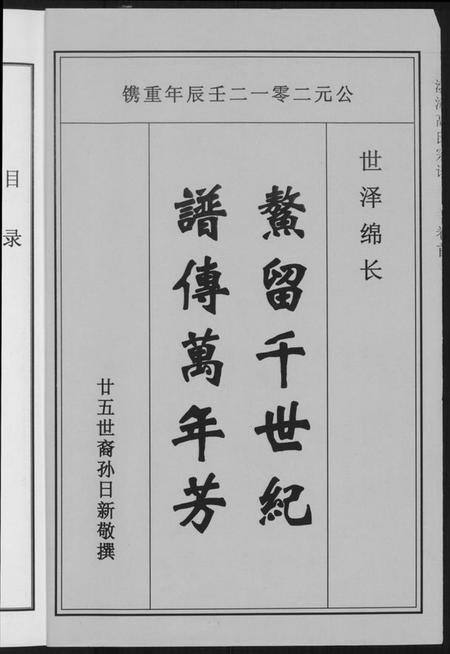 公元二零一二壬辰年重镌
世泽绵长
鰲留千世紀
譜傳萬年芳
廿五世裔孙日新敬撰
目录